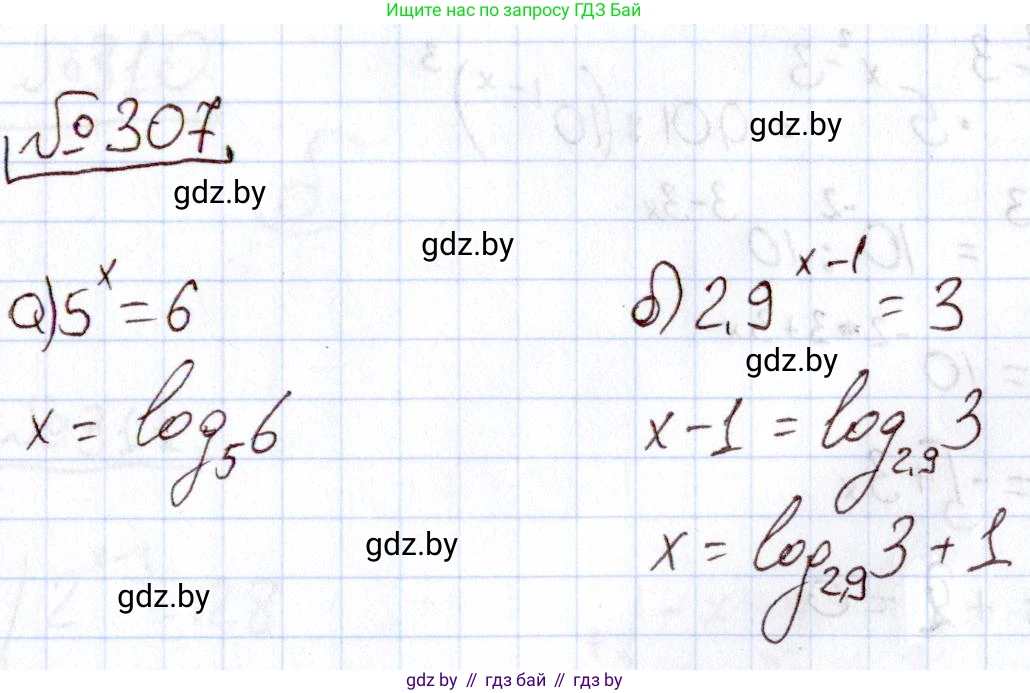 Ищите нас по запросу ГДЗ Бай
№307
gdz.by
gdz.by
gdz.by
а) 5^x = 6
x = log_5 6
б) 2,9^{x-1} = 3
gdz.by
x - 1 = log_{2,9} 3
x = log_{2,9} 3 + 1
gdz.by
gdz.by
gdz.by // гдз бай // гдз by